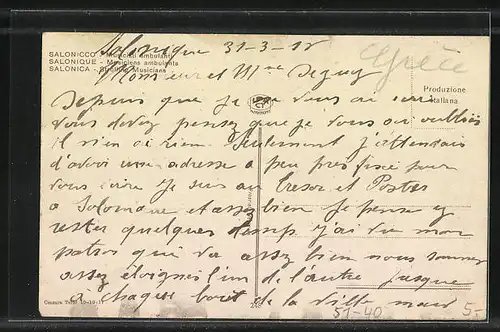 Salonique 31-3-18
SALONICCO - Musicisti ambulanti
SALONIQUE - Musiciens ambulants
SALONICA - Musicians
Grèce
Monsieur et Mme
Produzione Italiana
Depuis que je ne vous ai écri
vous devez pensez que je vous ai oubliés
il n'en ai rien. Seulement j'attendais
d'avoir une adresse a peu pres fixe pour
vous écrire Je suis au Tresor et Postes
a Salonique et assez bien Je pense y
rester quelques temp. J'ai vu mon
patron qui va assez bien nous sommes
assez éloignés l'un de l'autre presque
à chaque bout de la ville
Censura 10-10-17
248
51-40
5.-